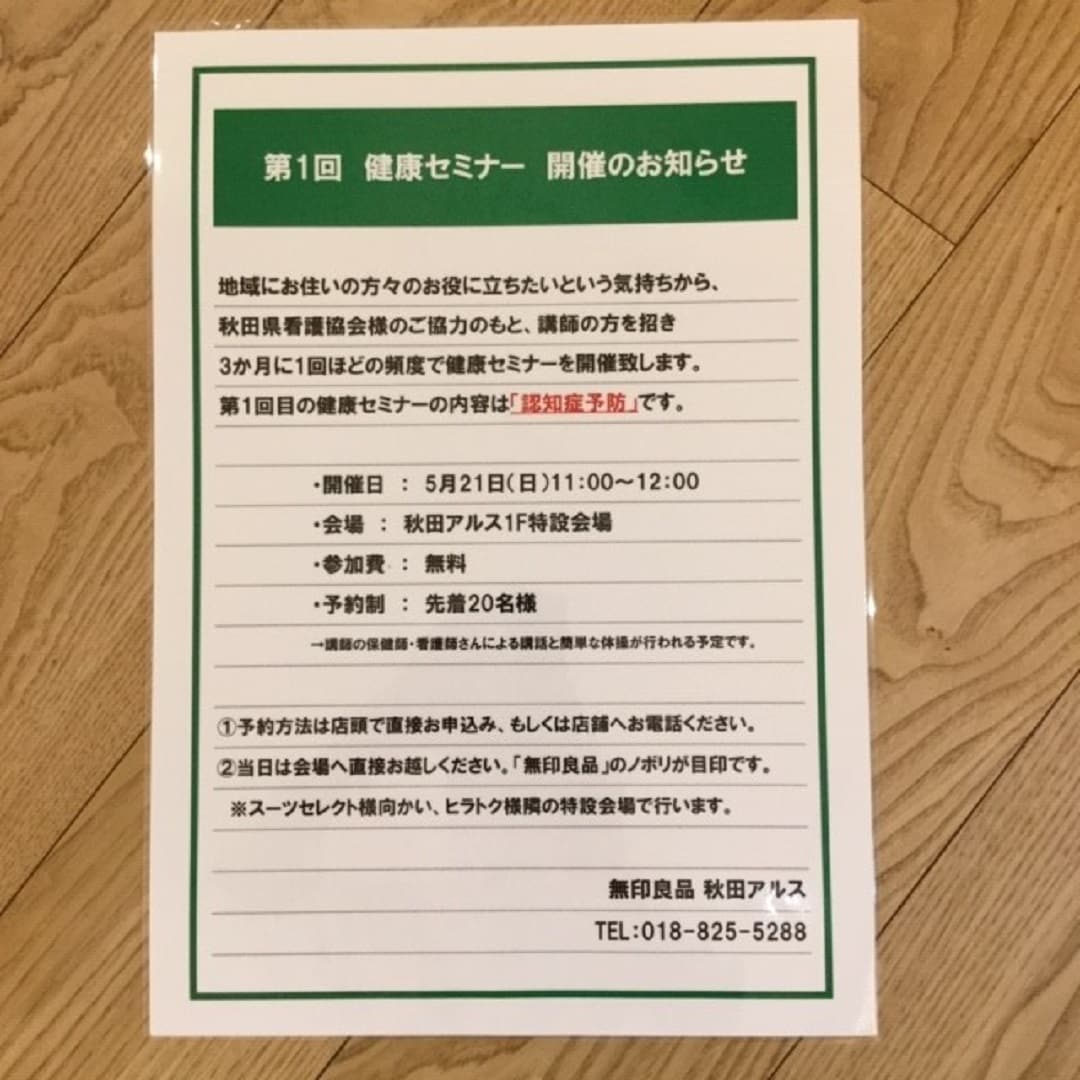 第1回 健康セミナー 開催のお知らせ
地域にお住いの方々のお役に立ちたいという気持ちから、
秋田県看護協会様のご協力のもと、講師の方を招き
3か月に1回ほどの頻度で健康セミナーを開催致します。
第1回目の健康セミナーの内容は「認知症予防」です。
・開催日 : 5月21日(日)11:00～12:00
・会場 : 秋田アルス1F特設会場
・参加費 : 無料
・予約制 : 先着20名様
→講師の保健師・看護師さんによる講話と簡単な体操が行われる予定です。
①予約方法は店頭で直接お申込み、もしくは店舗へお電話ください。
②当日は会場へ直接お越しください。「無印良品」のノボリが目印です。
※スーツセレクト様向かい、ヒラトク様隣の特設会場で行います。
無印良品 秋田アルス
TEL:018-825-5288